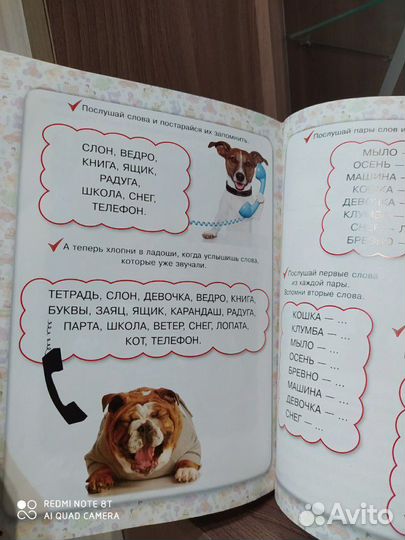 Послушай слова и постарайся их запомнить.
СЛОН, ВЕДРО,
КНИГА, ЯЩИК,
РАДУГА,
ШКОЛА, СНЕГ,
ТЕЛЕФОН.
А теперь хлопни в ладоши, когда услышишь слова,
которые уже звучали.
ТЕТРАДЬ, СЛОН, ДЕВОЧКА, ВЕДРО, КНИГА,
БУКВЫ, ЗАЯЦ, ЯЩИК, КАРАНДАШ, РАДУГА,
ПАРТА, ШКОЛА, ВЕТЕР, СНЕГ, ЛОПАТА,
КОТ, ТЕЛЕФОН.
Послушай пары слов и
МЫЛО —
ОСЕНЬ —
МАШИНА —
КОШКА —
ДЕВОЧКА —
КЛУМБА —
СНЕГ —
БРЕВНО —
Послушай первые слова
из каждой пары.
Вспомни вторые слова.
КОШКА — ...
КЛУМБА — ...
МЫЛО — ...
ОСЕНЬ — ...
БРЕВНО — ...
МАШИНА — ...
ДЕВОЧКА — ...
СНЕГ — ...
REDMI NOTE 8T
AI QUAD CAMERA
Avito